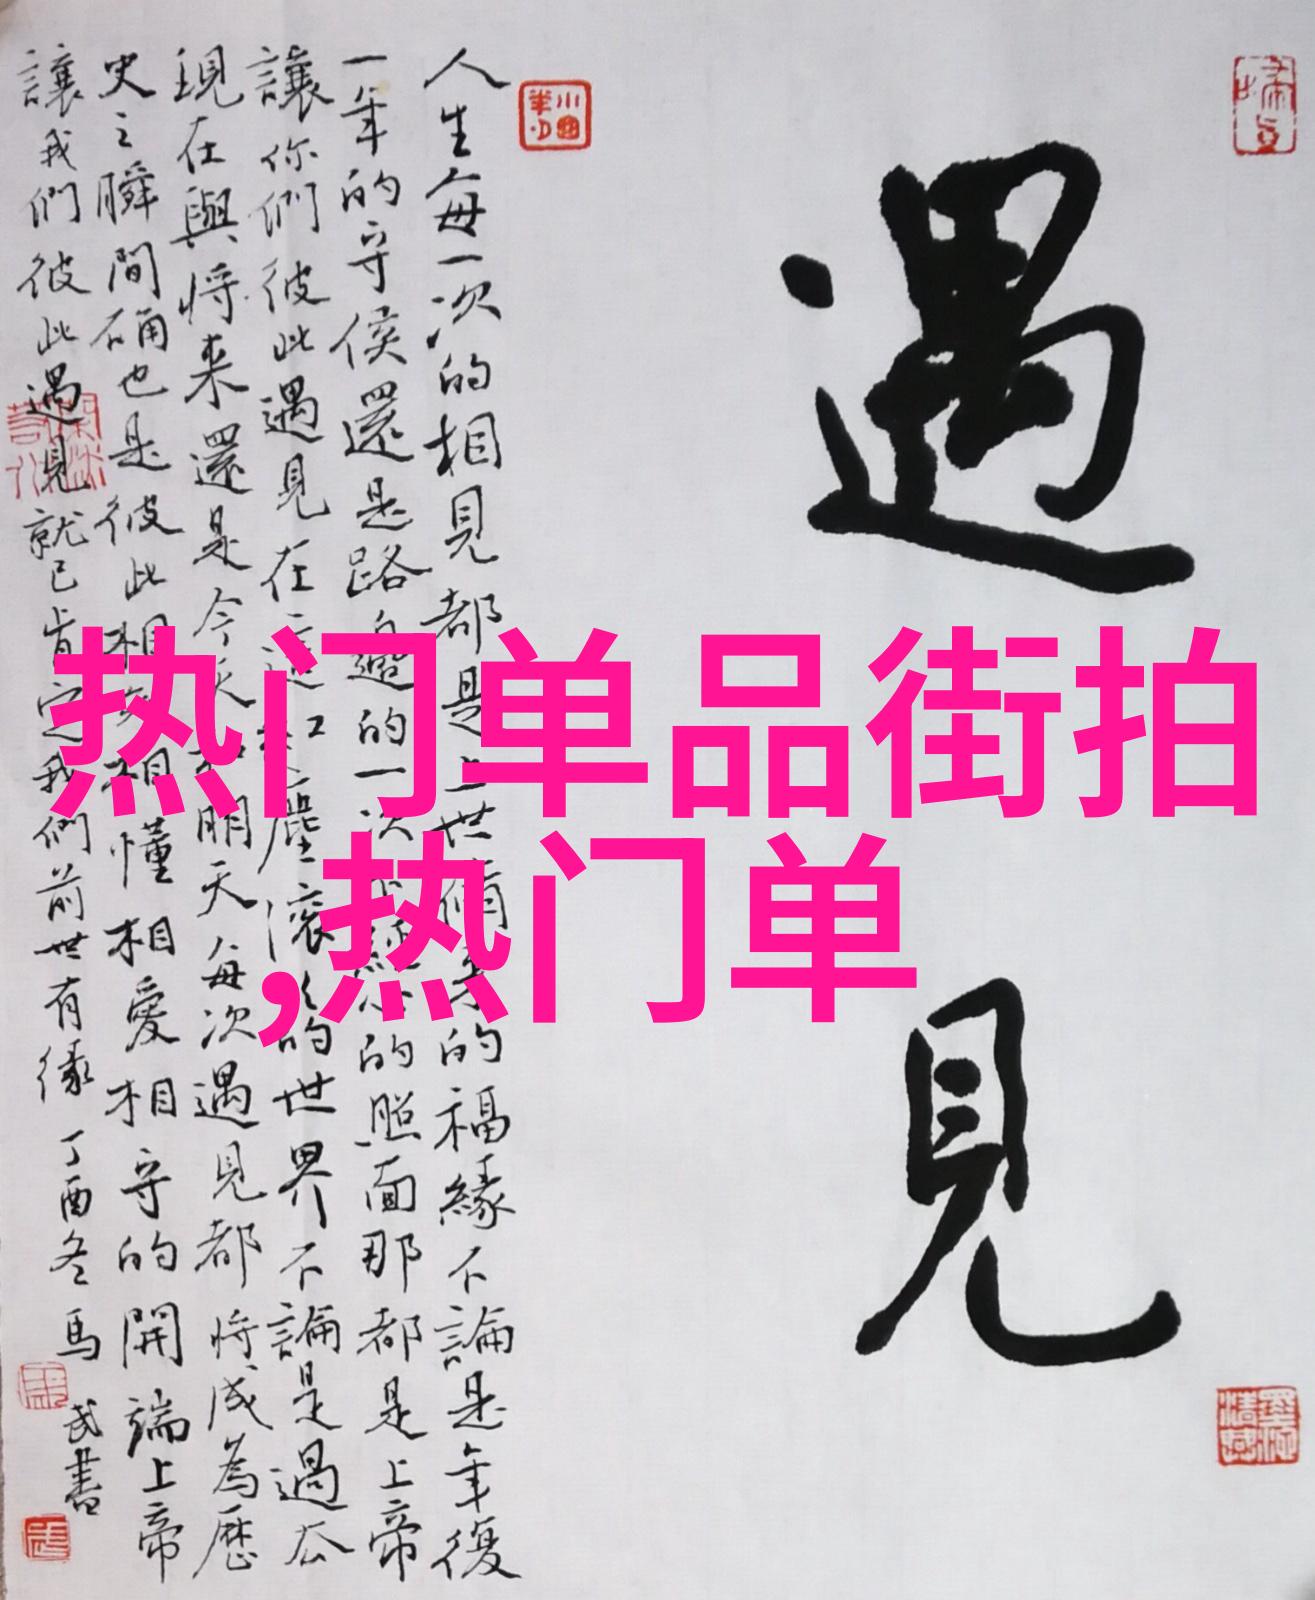 遇見
人生每一次的相見都是上世修来的福緣不論是年復
一年的守侯還是路邊的一次的照面那都是上帝
讓你們彼此遇見在這紅塵滚滚的世界不論是過去
現在與將来還是今天明天每次遇見都將成為歷
史之瞬間确也是彼此相相懂相愛相守的開端上帝
讓我們彼此遇見就已肯定我們前世有缘丁酉冬馬
武書
热门单品街拍
,热门单